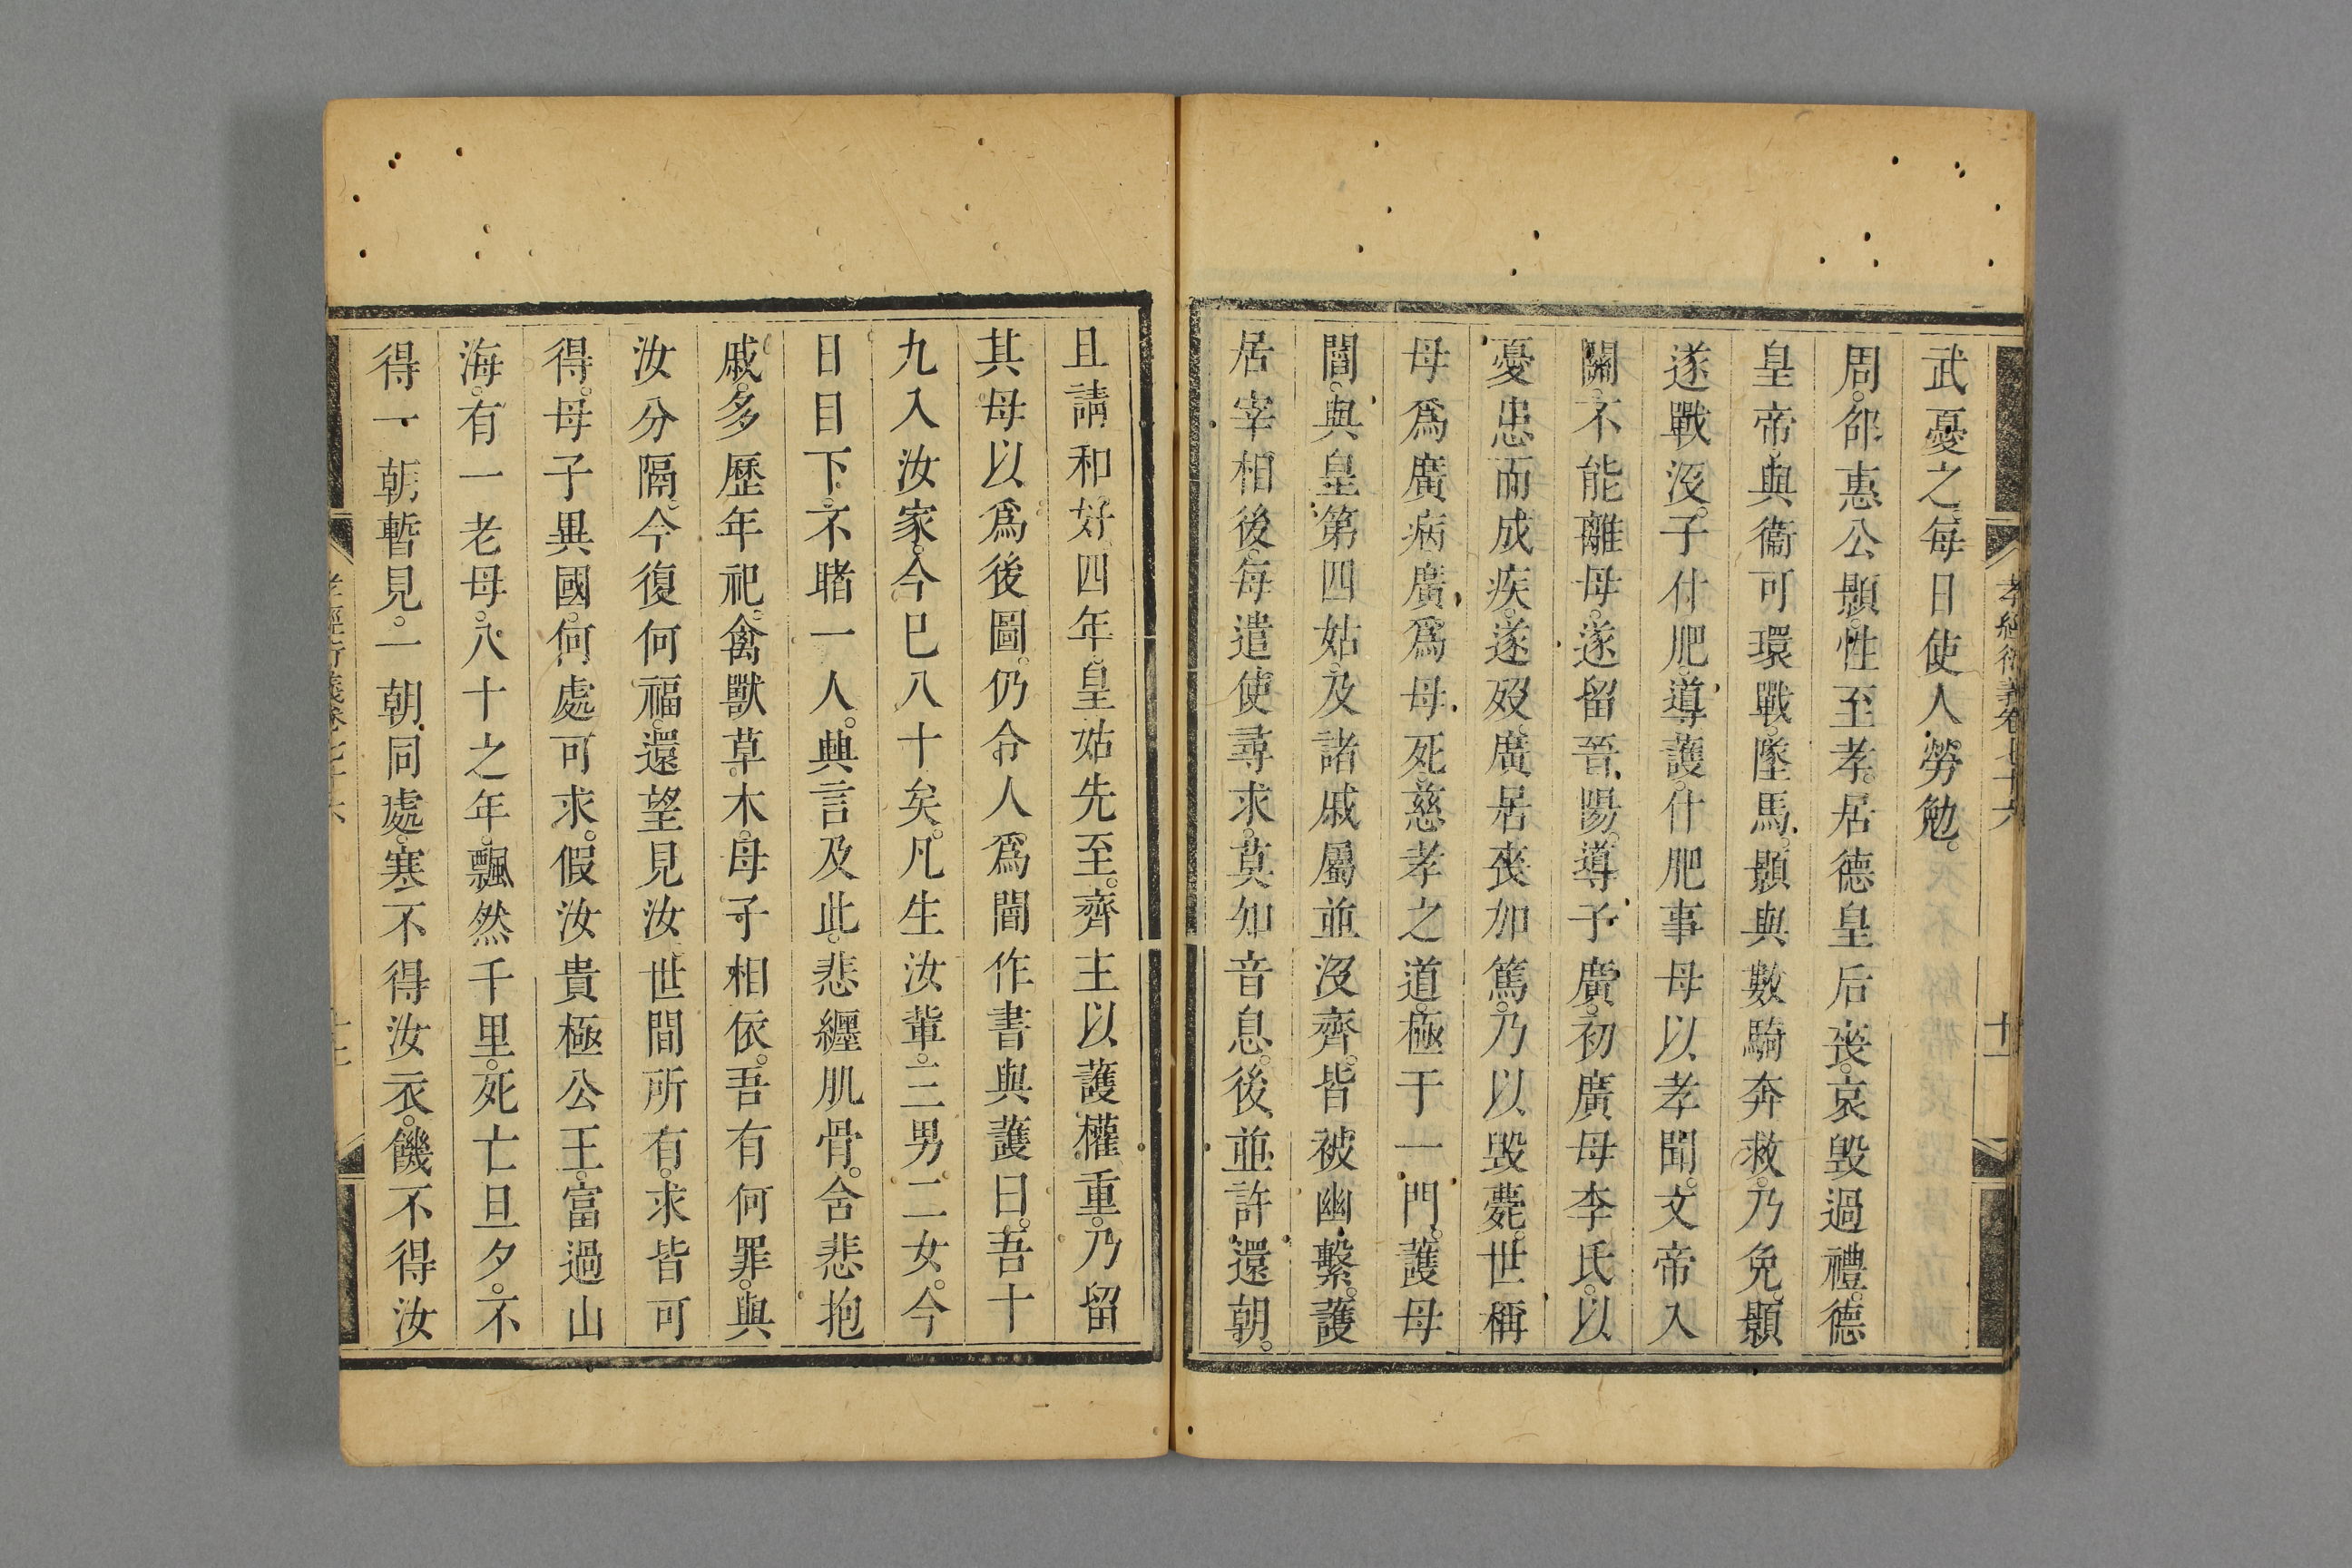 孝經衍義卷七十六
十一
武憂之。每日使人勞勉。
周。邵惠公顥。性至孝。居德皇后喪。哀毀過禮。德
皇帝與衞可環戰。墜馬。顥與數騎奔救。乃免。顥
遂戰沒。子什肥。導。護。什肥事母以孝聞。文帝入
關。不能離母。遂留晉陽。導子廣。初廣母李氏。以
憂患而成疾。遂歿。廣居喪加篤。乃以毀薨。世稱
母爲廣病。廣爲母死。慈孝之道。極于一門。護母
閻。與皇第四姑。及諸戚屬並沒齊。皆被幽繫。護
居宰相後。每遣使尋求。莫知音息。後並許還朝。
且請和好四年。皇姑先至。齊主以護權重。乃留
其母以爲後圖。仍令人爲閻作書與護曰。吾十
九入汝家。今巳八十矣。凡生汝輩。三男二女。今
日目下。不睹一人。興言及此。悲纒肌骨。含悲抱
戚。多歷年祀。禽獸草木。母子相依。吾有何罪。與
汝分隔。今復何福。還望見汝。世間所有。求皆可
得。母子異國。何處可求。假汝貴極公王。富過山
海。有一老母。八十之年。飄然千里。死亡旦夕。不
得一朝暫見。一朝同處。寒不得汝衣。饑不得汝